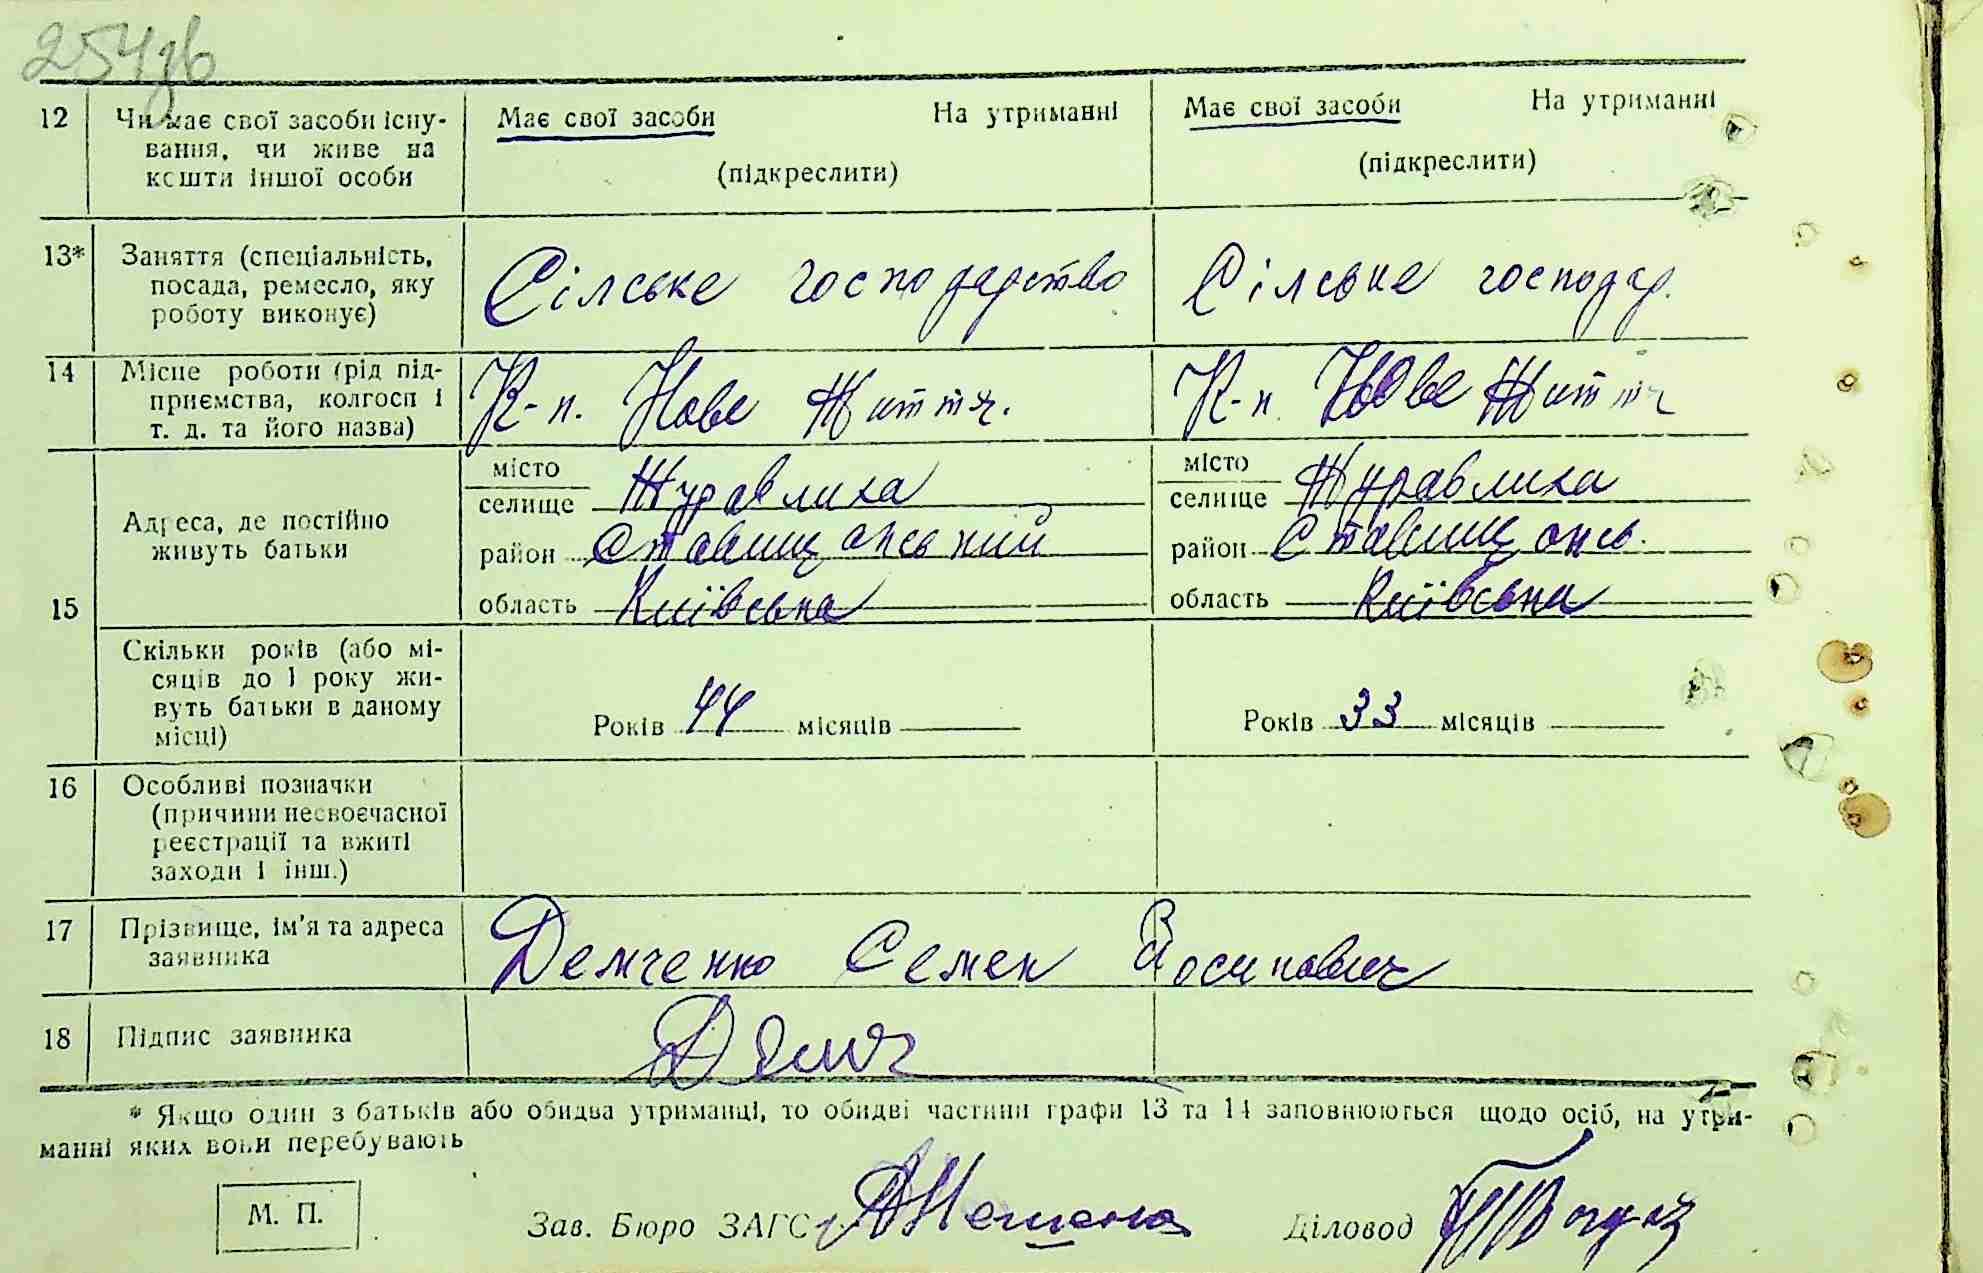 254зв
12 Чи має свої засоби існу-
вання, чи живе на
кошти іншої особи
Має свої засоби На утриманні
(підкреслити)
Має свої засоби На утриманні
(підкреслити)
13* Заняття (спеціальність,
посада, ремесло, яку
роботу виконує)
Сілське господарство
Сілське господар.
14 Місце роботи (рід під-
приємства, колгосп і
т. д. та його назва)
К-п. Нове Життя.
К-п. Нове Життя
15 Адреса, де постійно
живуть батьки
місто
селище Журавлиха
район Ставищанський
область Київська
місто
селище Журавлиха
район Ставищансь.
область Київська
Скільки років (або мі-
сяців до 1 року жи-
вуть батьки в даному
місці)
Років 44 місяців
Років 33 місяців
16 Особливі позначки
(причини несвоєчасної
реєстрації та вжиті
заходи і інш.)
17 Прізвище, ім'я та адреса
заявника
Демченко Семен Йосипович
18 Підпис заявника
Демч
* Якщо один з батьків або обидва утриманці, то обидві частини графи 13 та 14 заповнюються щодо осіб, на утри-
манні яких вони перебувають
М. П.
Зав. Бюро ЗАГС
Діловод